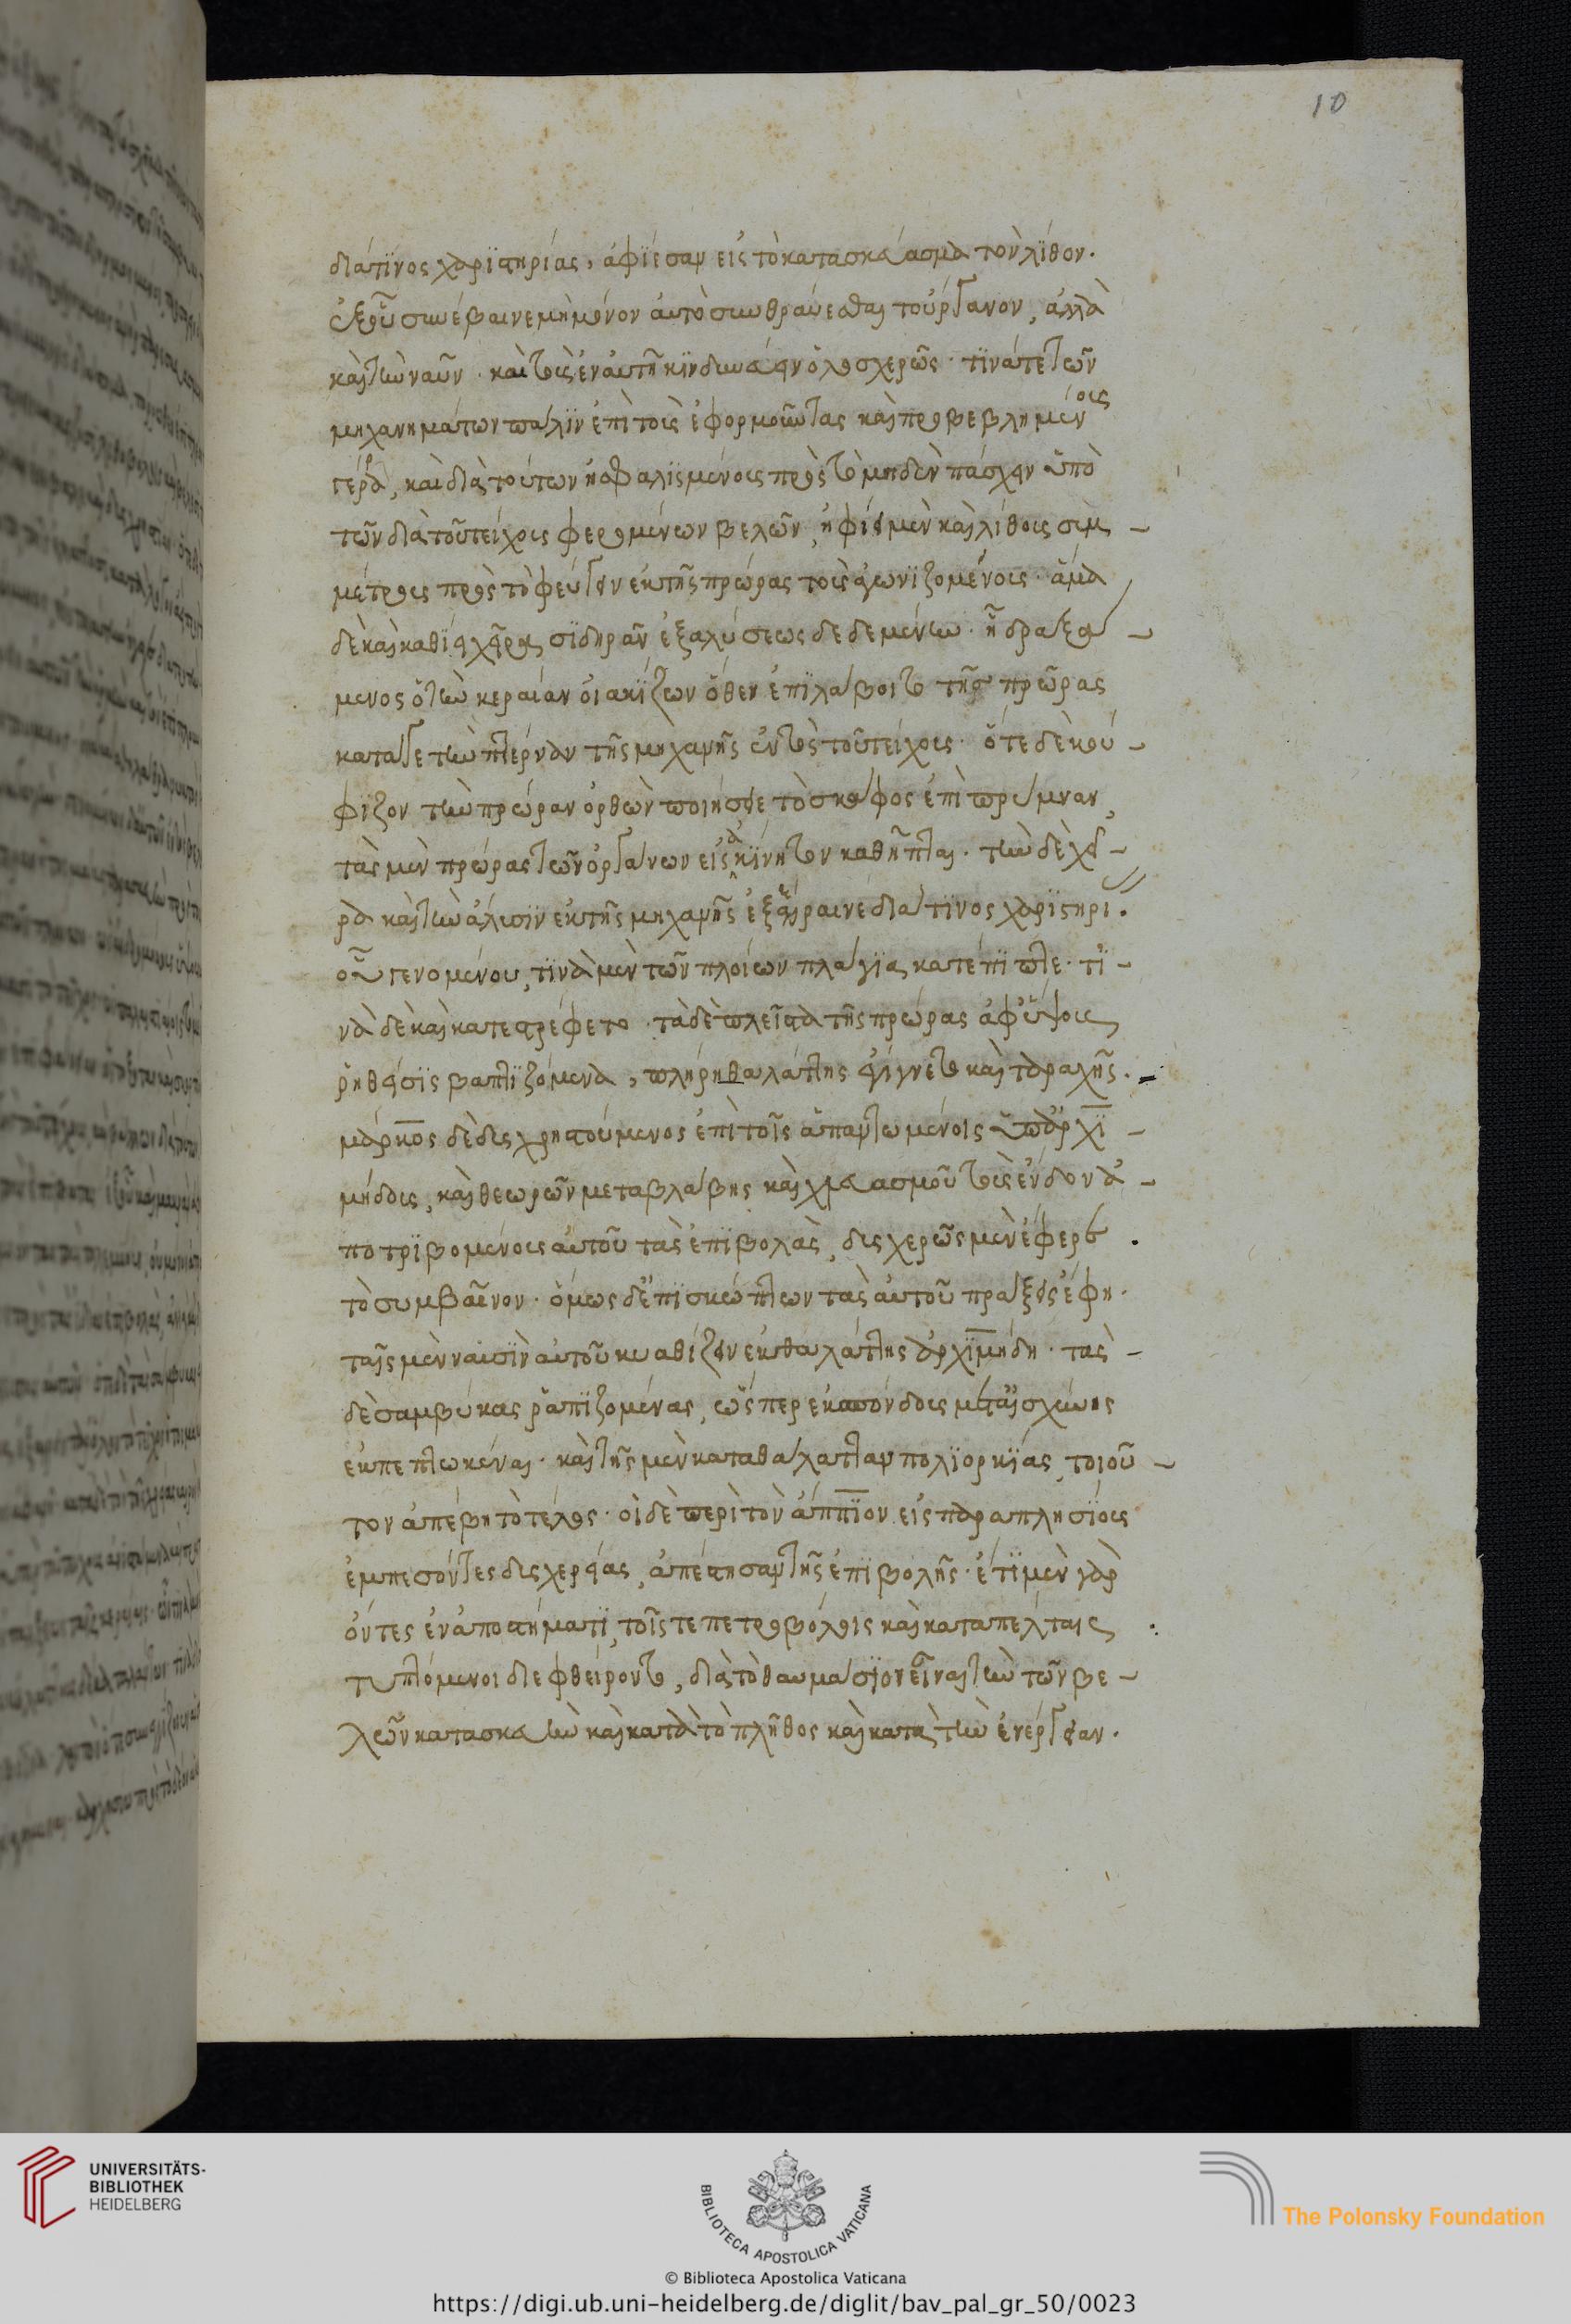 10
διά τινος χαριστηρίας, ἀφίεσαν εἰς τὸ κατασκεύασμα τὸν λίθον.
ἐξ οὗ συνέβαινε μὴ μόνον αὐτὸ συνθραύεσθαι τοὔργανον, ἀλλὰ
καὶ τὴν ναῦν. καὶ τοὺς ἐν αὐτῇ κινδυνεύειν ὁλοσχερῶς. τινά τε τῶν
μηχανημάτων πάλιν ἐπὶ τοὺς ἐφορμοῦντας καὶ προβεβλημένους
γέρρα, καὶ διὰ τούτων ἠσφαλισμένους πρὸς τὸ μηδὲν πάσχειν ὑπὸ
τῶν διὰ τοῦ τείχους φερομένων βελῶν, ἠφίει μὲν καὶ λίθους συμ-
μέτρους πρὸς τὸ φεύγειν ἐκ τῆς πρώρας τοὺς ἀγωνιζομένους. ἅμα
δὲ καὶ καθίει χεῖρα σιδηρᾶν ἐξ ἁλύσεως δεδεμένην. ᾗ δραξά-
μενος ὁ τὴν κεραίαν οἰακίζων ὅθεν ἐπιλάβοιτο τῆς πρώρας
κατῆγε τὴν πτέρναν τῆς μηχανῆς ἐντὸς τοῦ τείχους. ὅτε δὲ κου-
φίζον τὴν πρώραν ὀρθὸν ποιήσειε τὸ σκάφος ἐπὶ πρύμναν,
τὰς μὲν πρώρας τῶν ὀργάνων εἰς ἀκίνητον καθῆπται. τὴν δὲ χεῖ-
ρα καὶ τὴν ἅλυσιν ἐκ τῆς μηχανῆς ἐξέρραινε διά τινος χαριστηρι.
οὗ γενομένου, τινὰ μὲν τῶν πλοίων πλάγια κατέπιπτε. τι-
νὰ δὲ καὶ κατεστρέφετο. τὰ δὲ πλεῖστα τῆς πρώρας ἀφ' ὕψους
ῥιθείσης βαπτιζόμενα, πλήρη θαλάττης ἐγίγνετο καὶ ταραχῆς.
μάρκος δὲ δυσχρηστούμενος ἐπὶ τοῖς ἀπαντωμένοις ὑπ' ἀρχι-
μήδους, καὶ θεωρῶν μετὰ βλάβης καὶ χλευασμοῦ τοὺς ἔνδον ἀ-
ποτριβομένους αὐτοῦ τὰς ἐπιβολὰς, δυσχερῶς μὲν ἔφερε
τὸ συμβαῖνον. ὅμως δ' ἐπισκώπτων τὰς αὐτοῦ πράξεις ἔφη.
ταῖς μὲν ναυσὶν αὐτοῦ κυαθίζειν ἐκ θαλάττης ἀρχιμήδη. τὰς
δὲ σαμβύκας ῥαπιζομένας, ὥσπερ ἐκσπόνδους μετ' αἰσχύνης
ἐκπεπτωκέναι. καὶ τῆς μὲν κατὰ θάλατταν πολιορκίας, τοιοῦ-
τον ἀπέβη τὸ τέλος. οἱ δὲ περὶ τὸν ἄππιον εἰς παραπλησίους
ἐμπεσόντες δυσχερείας, ἀπέστησαν τῆς ἐπιβολῆς. ἔτι μὲν γὰρ
ὄντες ἐν ἀποστήματι, τοῖς τε πετροβόλοις καὶ καταπέλταις
τυπτόμενοι διεφθείροντο, διὰ τὸ θαυμάσιον εἶναι τὴν τῶν βε-
λῶν κατασκευὴν καὶ κατὰ τὸ πλῆθος καὶ κατὰ τὴν ἐνέργειαν.
UNIVERSITÄTS-
BIBLIOTHEK
HEIDELBERG
BIBLIOTECA APOSTOLICA VATICANA
The Polonsky Foundation
© Biblioteca Apostolica Vaticana
https://digi.ub.uni-heidelberg.de/diglit/bav_pal_gr_50/0023